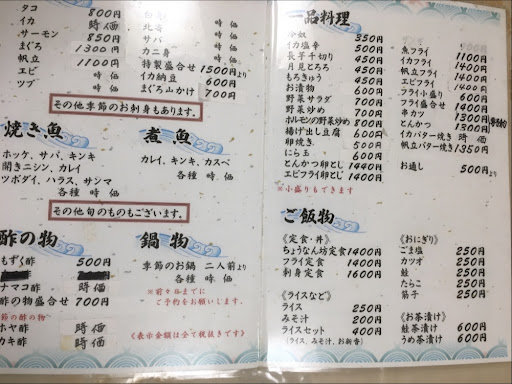 タコ 800円
イカ 時価
サーモン 850円
まぐろ 1300円
帆立 1100円
エビ 時価
ツブ 時価
時価
北寄 時価
サバ 時価
カニ身 時価
特製盛合せ 1500円より
イカ納豆 600円
まぐろ山かけ 700円
その他季節のお刺身もあります。
焼き魚
ホッケ、サバ、キンキ
開きニシン、カレイ
ツボダイ、ハラス、サンマ
各種 時価
煮魚
カレイ、キンキ、カスベ
各種 時価
その他旬のものもございます。
酢の物
もずく酢 500円
ナマコ酢 時価
酢の物盛合せ 700円
季節の酢の物
ホヤ酢 時価
カキ酢 時価
鍋物
季節のお鍋 二人前より
各種 時価
※前々日までに
ご予約をお願いします
《表示金額は全て税抜きです》
一品料理
冷奴 350円
イカ塩辛 500円
長芋千切り 450円
月見とろろ 450円
もろきゅう 450円
お漬物 600円
野菜サラダ 700円
野菜炒め 700円
ホルモンの野菜炒め 800円
揚げ出し豆腐 600円
卵焼き 500円
にら玉 600円
とんかつ卵とじ 1440円
エビフライ卵とじ 1440円
※小盛りもできます
魚フライ 1100円
イカフライ 1400円
帆立フライ 1400円
エビフライ 1400円
フライ小盛り 600円
フライ盛合せ 1400円
串カツ 1300円
とんかつ 1300円
イカバター焼き 時価
帆立バター焼き 1350円
お通し 500円より
ご飯物
《定食・丼》
ちょうなん坊定食 1400円
フライ定食 1400円
刺身定食 1600円
《ライスなど》
ライス 250円
みそ汁 200円
ライスセット 400円
(ライス、みそ汁、お新香)
《おにぎり》
ごま塩 250円
カツオ 250円
鮭 250円
たらこ 250円
筋子 250円
《お茶漬け》
鮭茶漬け 600円
うめ茶漬け 600円